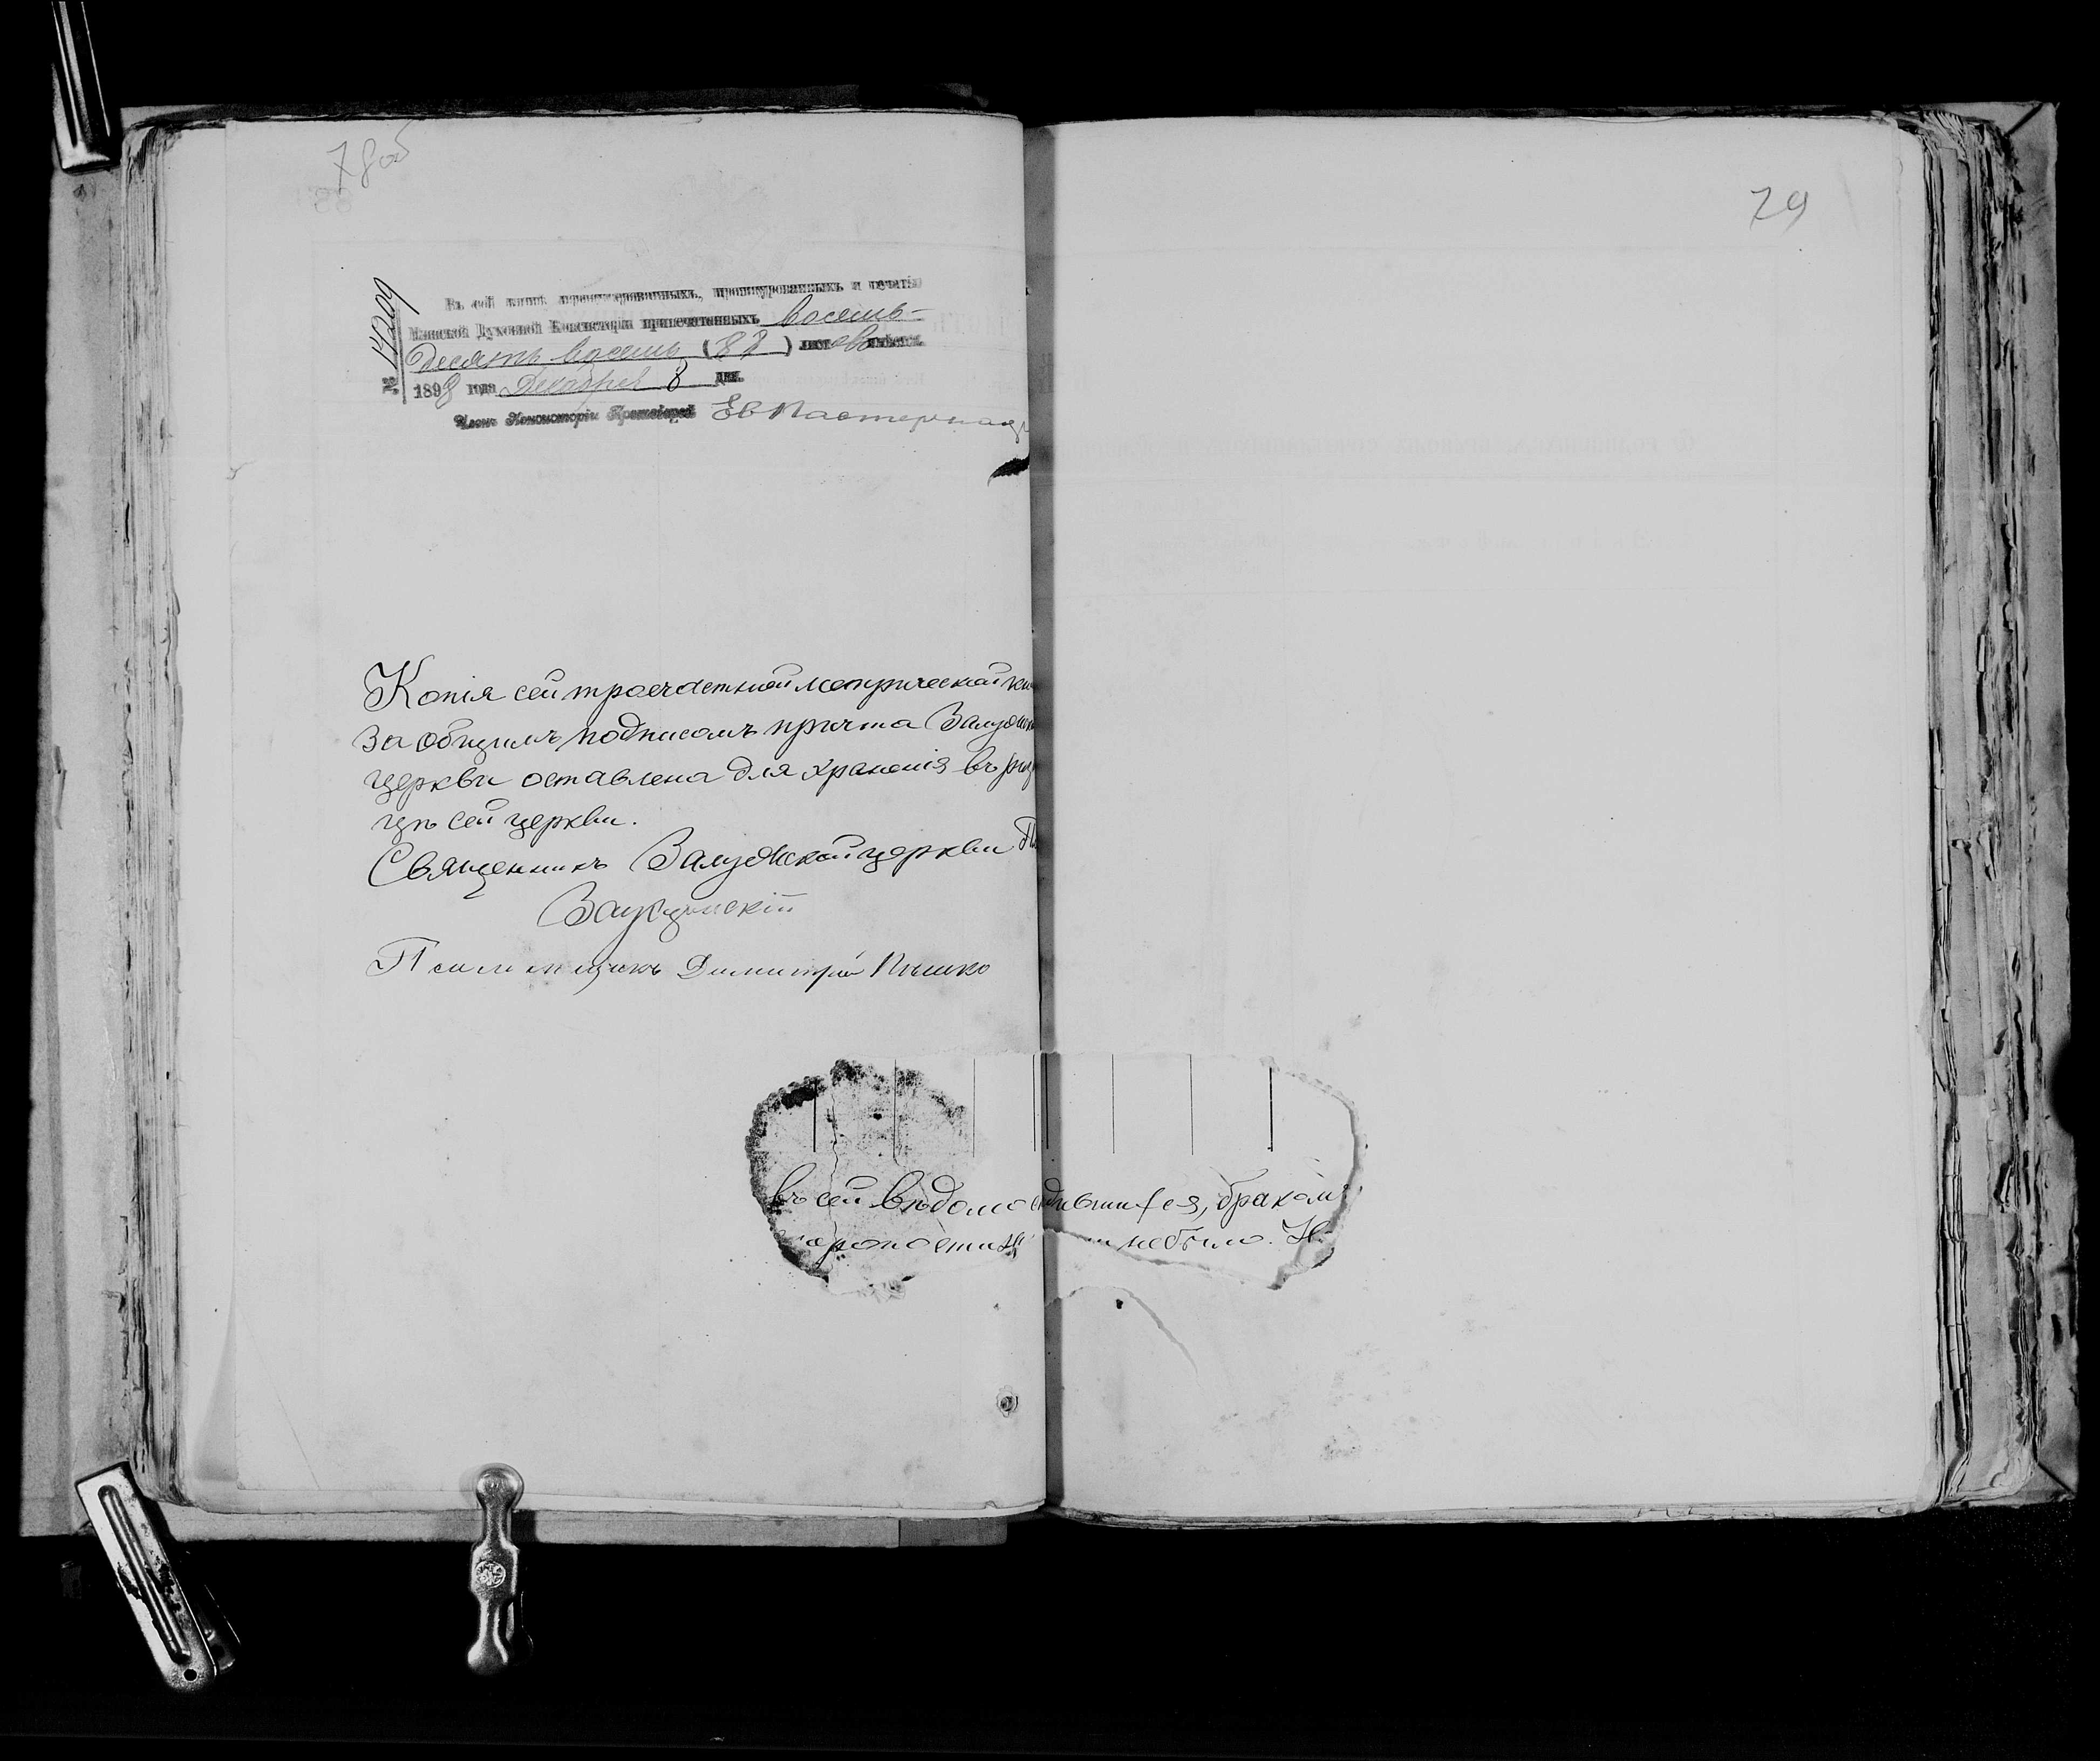 78об
Въ сей книгѣ перенумерованныхъ, прошнурованныхъ и печатію
Минской Духовной Консисторіи припечатанныхъ восемь-
десятъ восемь (88) листовъ имѣется.
№ 14209
1898 года Декабря 8 дня.
Членъ Консисторіи Протоіерей
Копія сей троечастной метрической
за общимъ подписомъ причта
церкви оставлена для храненія въ
цѣ сей церкви.
Священникъ Залужской церкви
Псаломщикъ Димитрій Пышко
въ сей вѣдомо
бракомъ
не было.
79